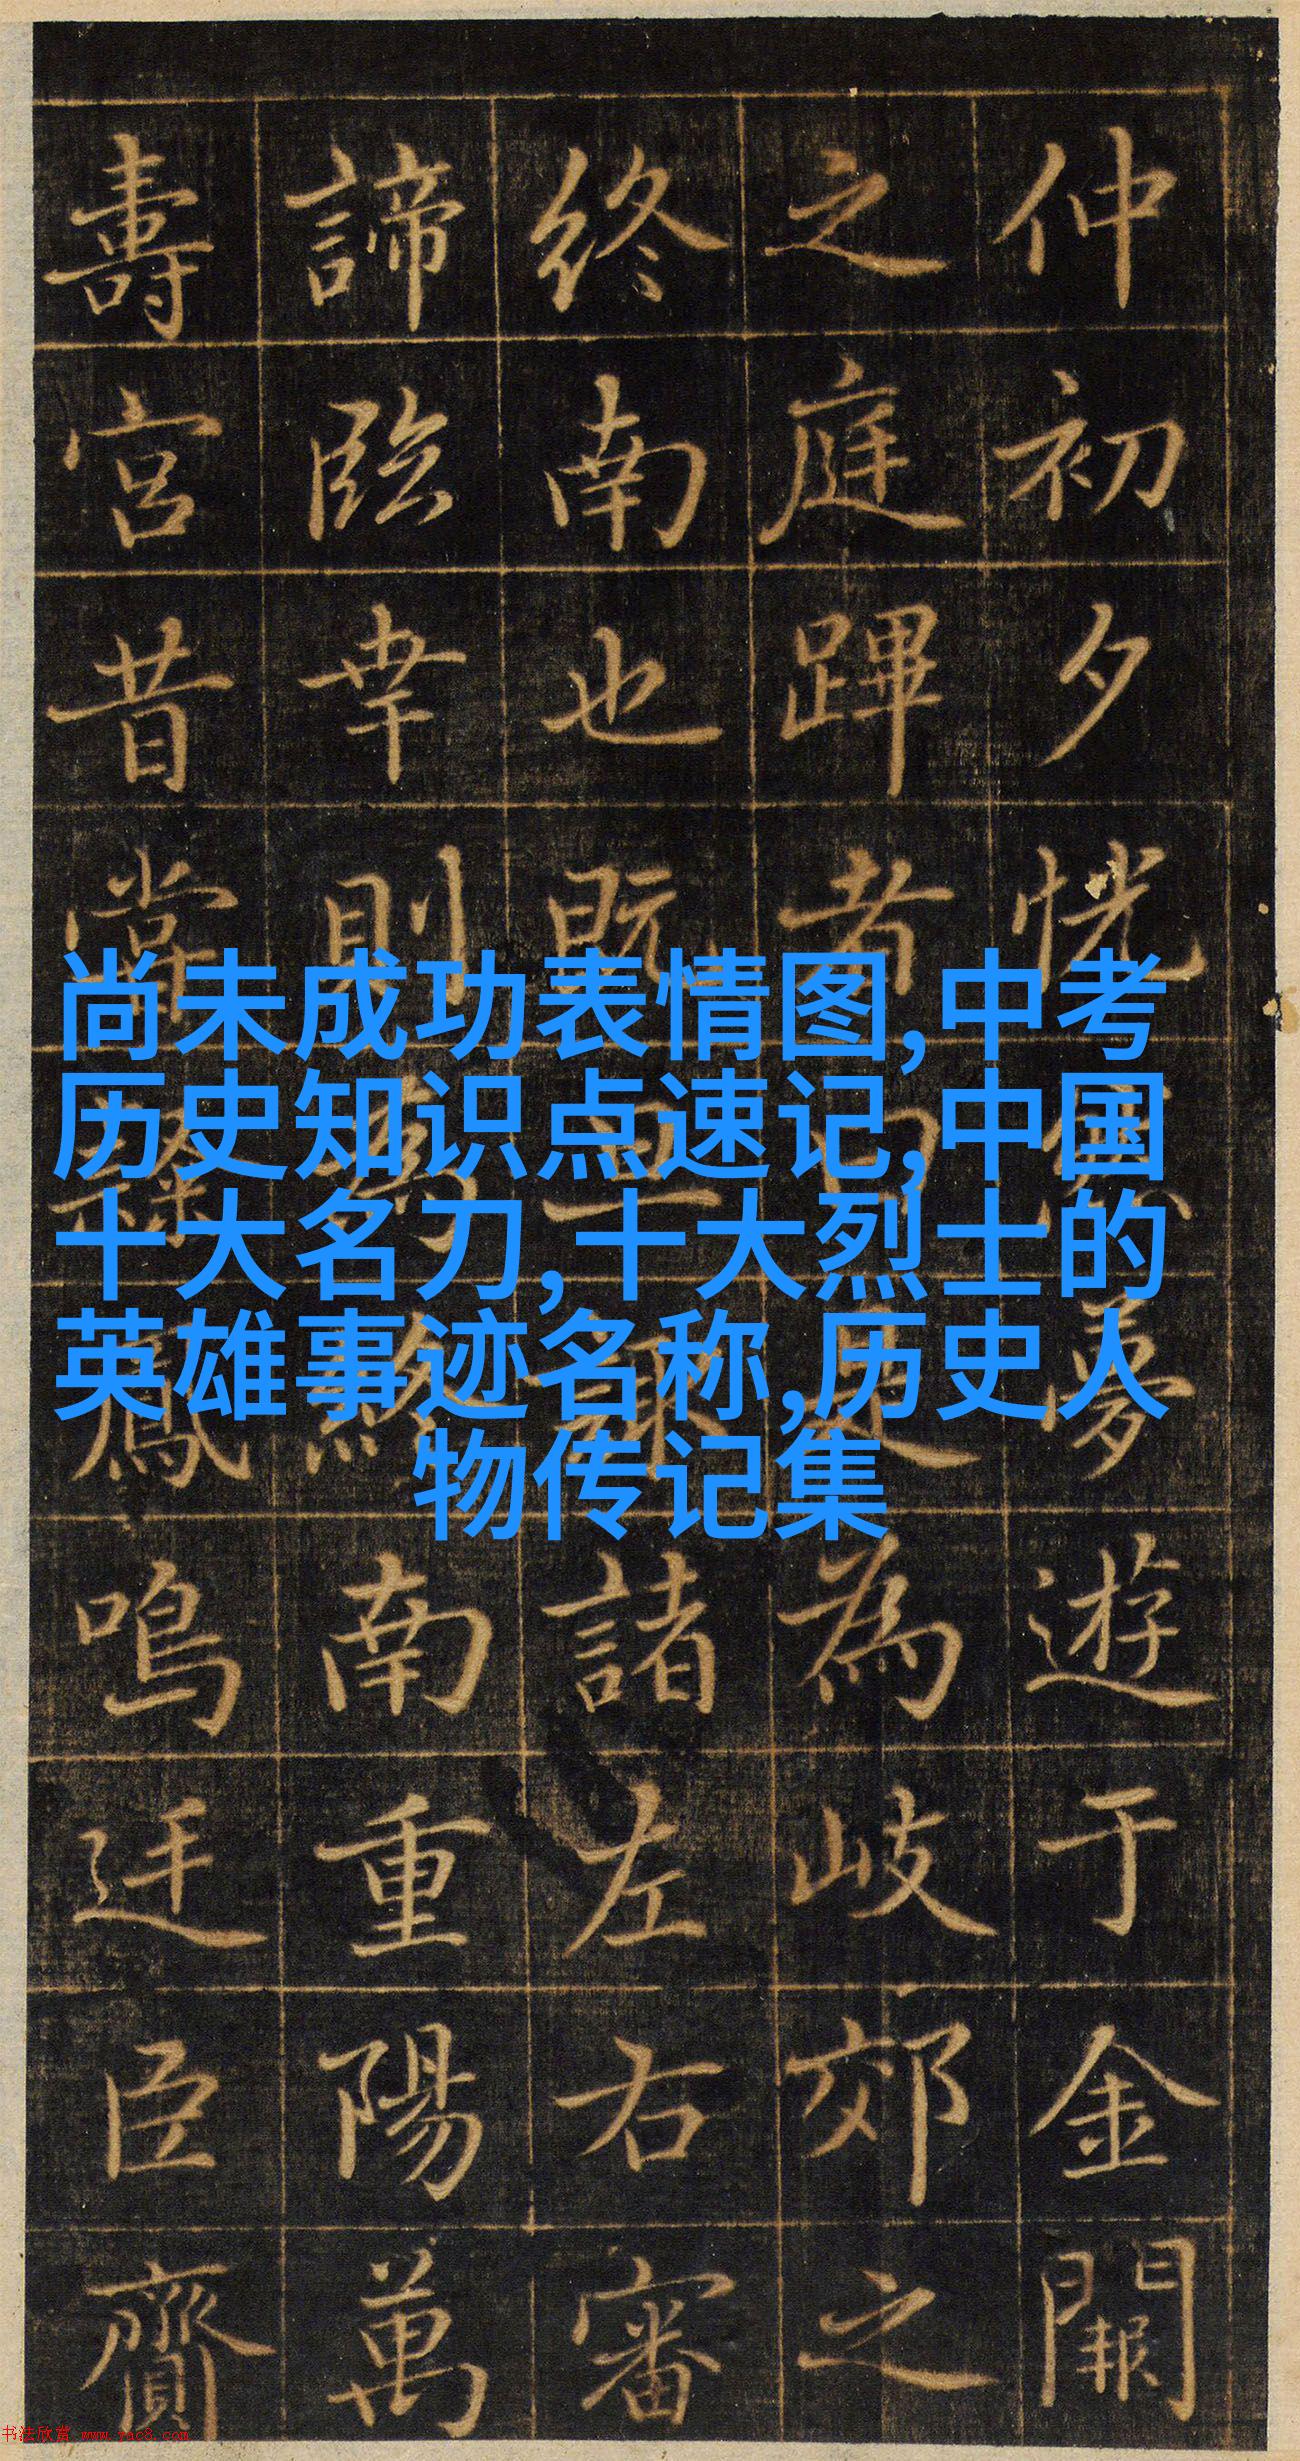 仲初夕恍夢遊于金闕
之庭蹕者為岐郊之
終南也既諸左右審
諦臨幸則南重陽萬
壽宮昔嘗鳳鳴迋臣齎
尚未成功表情图,中考
历史知识点速记,中国
十大名刀,十大烈士的
英雄事迹名称,历史人
物传记集
书法欣赏 www.yac8.com